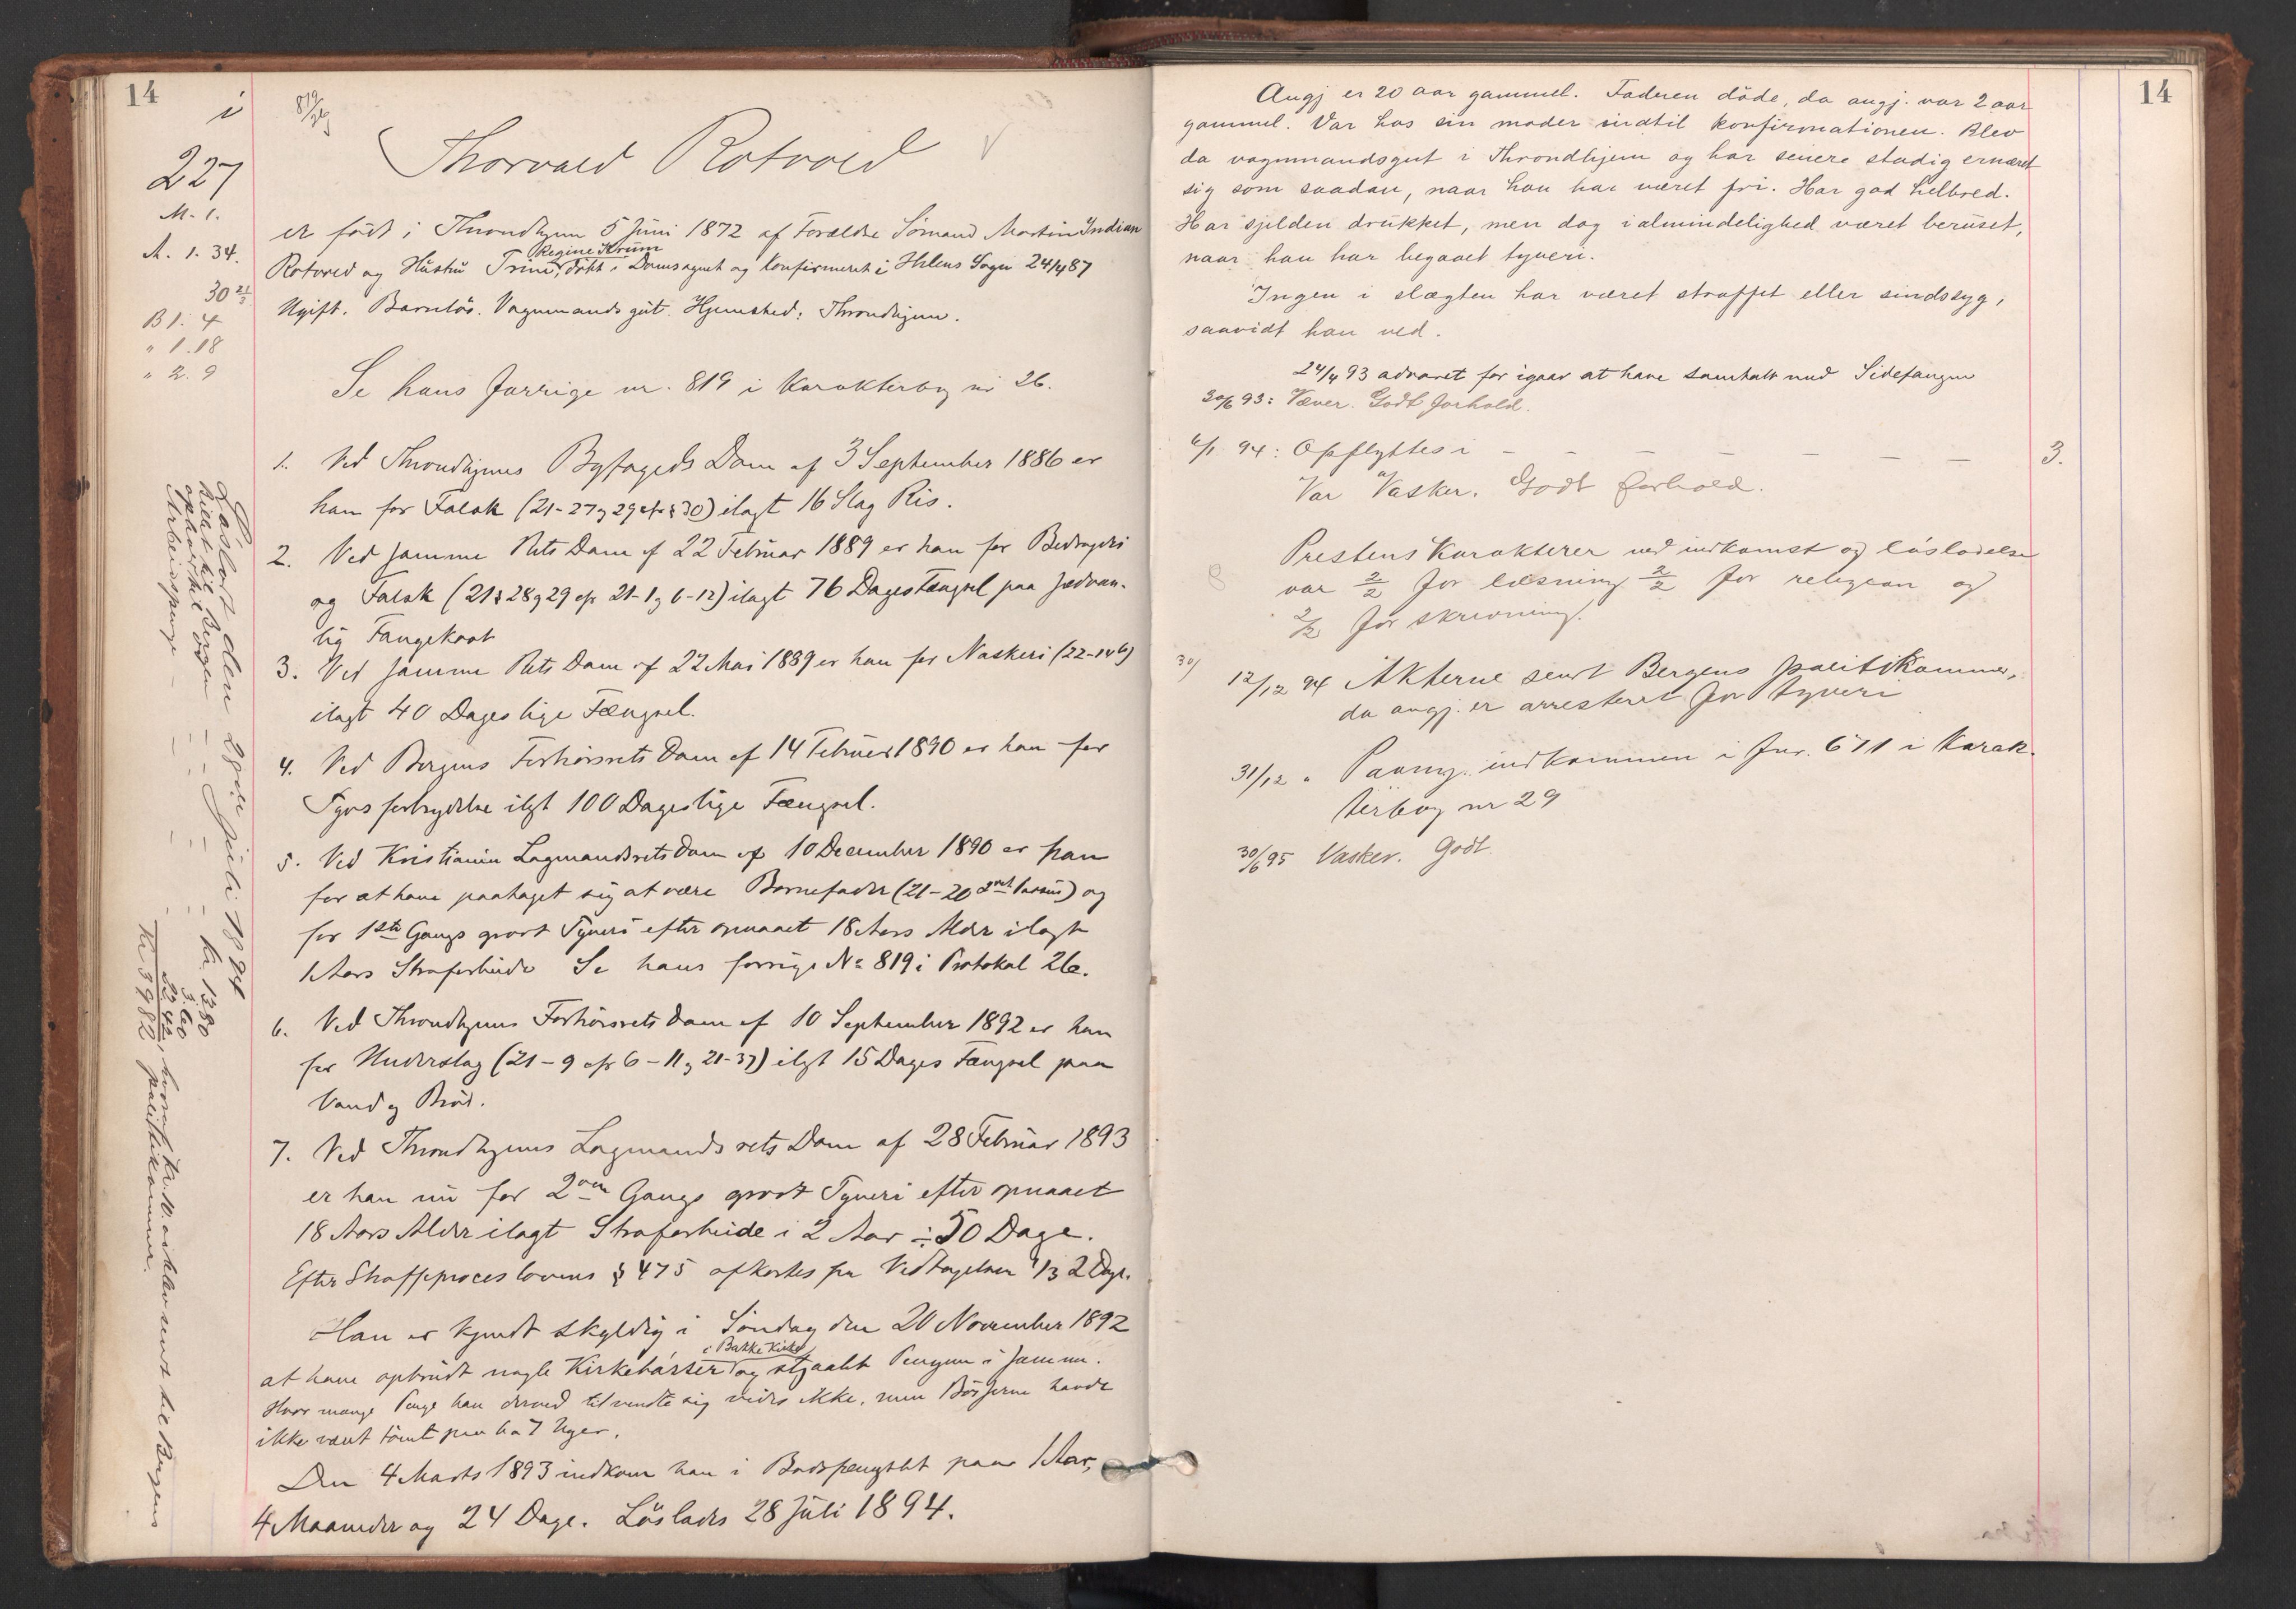 14
i
819/26
227
M. 1.
A. 1. 34.
30 2/3
B 1. 4
" 1. 18
" 2. 9
Thorvald Rotvold
er født i Throndhjem 5 Juni 1872 af Forældre Sømand Martin Indian
Regine Krum
Rotvold og Hustru Trine, døbt i Domsognet og konfirmeret i Ihlens Sogn 24/4 87
Ugift. Barnløs. Vognmandsgut. Hjemsted: Throndhjem.
Se hans forrige nr. 819 i Karakterbog nr 26.
1. Ved Throndhjems Byfogeds Dom af 3 September 1886 er
han for Falsk (21-27 og 29 cfr § 30) ilagt 16 Slag Ris.
2. Ved samme Rets Dom af 22 Februar 1889 er han for Bedrageri
og Falsk (21 § 28 og 29 cfr 21-1 og 6-12) ilagt 76 Dages Fængsel paa sædvan-
lig Fangekost
3. Ved samme Rets Dom af 22 Mai 1889 er han for Naskeri (22-14 b)
ilagt 40 Dages lige Fængsel.
4. Ved Bergens Forhørsrets Dom af 14 Februar 1890 er han for
Tyvsforbrydelse ilagt 100 Dages lige Fængsel.
5. Ved Kristiania Lagmandsrets Dom af 10 December 1890 er han
for at have paataget sig at være Barnefader (21-20 2det Passus) og
for 1ste Gangs grovt Tyveri efter opnaaet 18 Aars Alder ilagt
1 Aars Strafarbeide Se hans forrige No 819 i Protokol 26.
6. Ved Throndhjems Forhørsrets Dom af 10 September 1892 er han
for Underslag (21-9 cfr 6-11 og 21-37) ilagt 15 Dages Fængsel paa
Vand og Brød.
7. Ved Throndhjems Lagmandsrets Dom af 28 Februar 1893
er han nu for 2den Gangs grovt Tyveri efter opnaaet
18 Aars Alder ilagt Strafarbeide i 2 Aar ÷ 50 Dage.
Efter Straffeproceslovens § 475 afkortes fra Vedtagelsen 1/3 2 Dage.
Han er kjendt skyldig i Søndag den 20 November 1892
i Bakke Kirke
at have opbrudt nogle Kirkebøsser og stjaalet Pengene i samme.
Hvor mange Penge han derved tilvendte sig vides ikke, men Bøsserne havde
ikke været tømt paa 6 a 7 Uger.
Den 4 Marts 1893 indkom han i Bodsfængslet paa 1 Aar,
4 Maaneder og 24 Dage. Løslades 28 Juli 1894.
Løsladt den 28de Juli 1894
Billet til Bergen - - - - Kr. 13.80
ophold til do - - - - 3.60
Arbeidspenge - - - - 22.42, hvoraf Kr. 10. blev sendt til Bergens
Kr 39.82 politikammer.
14
Angj er 20 aar gammel. Faderen döde, da angj. var 2 aar
gammel. Var hos sin moder indtil konfirmationen. Blev
da vognmandsgut i Throndhjem og har senere stadig ernæret
sig som saadan, naar han har været fri. Har god helbred.
Har sjelden drukket, men dog i almindelighed været beruset,
naar han har begaaet tyveri.
Ingen i slægten har været straffet eller sindssyg,
saavidt han ved.
24/4 93 advaret for igaar at have samtalt med Sidefangen
30/6 93: Væver. Godt forhold.
6/1 94: Opflyttes i - - - - - - - 3.
Var Vasker. Godt forhold.
8
Prestens karakterer ved indkomst og løsladelse
var 2/2 for læsning 2/2 for religion og
2/2 for skrivning.
30/
12/12 94 Akterne sendt Bergens politikammer,
da angj. er arresteret for tyveri
31/12 " Paany indkommen i Fnr. 671 i Karak-
terbog nr 29
30/6 95 Vasker. Godt.